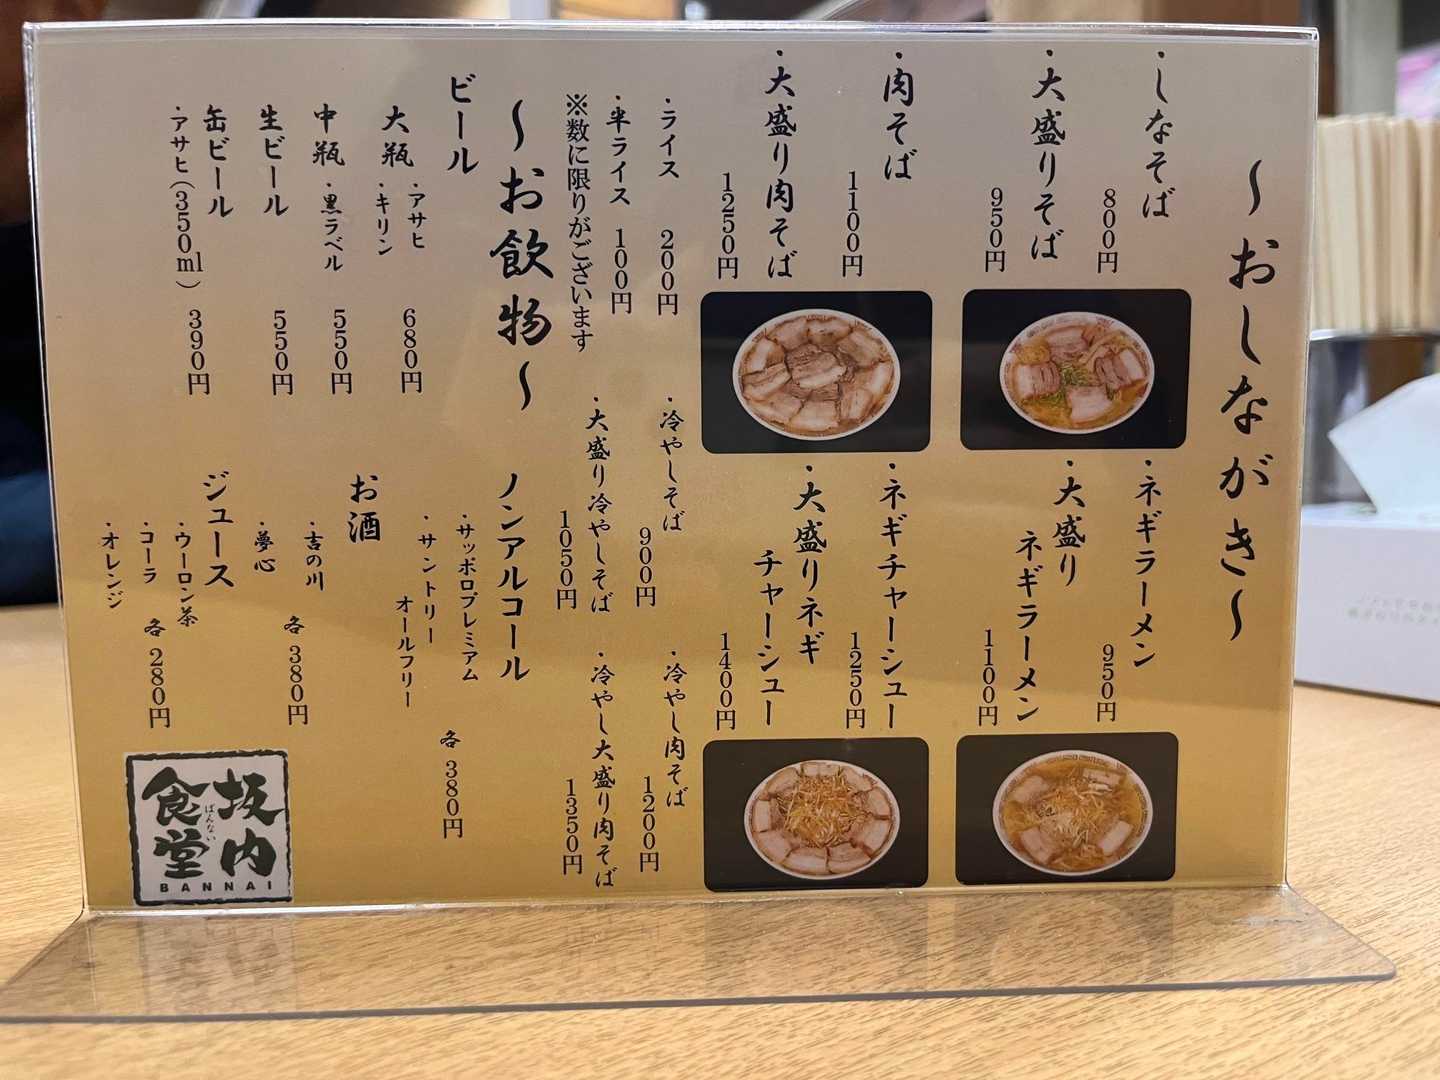 ～おしながき～
・しなそば
800円
・大盛りそば
950円
・肉そば
1100円
・大盛り肉そば
1250円
・ネギラーメン
950円
・大盛り
ネギラーメン
1100円
・ネギチャーシュー
1250円
・大盛りネギ
チャーシュー
1400円
・ライス 200円
・半ライス 100円
※数に限りがございます
・冷やしそば
900円
・大盛り冷やしそば
1050円
・冷やし肉そば
1200円
・冷やし大盛り肉そば
1350円
～お飲物～
ビール
大瓶 ・アサヒ
・キリン
680円
中瓶 ・黒ラベル 550円
生ビール 550円
缶ビール
・アサヒ(350ml) 390円
ノンアルコール
・サッポロプレミアム
・サントリー
オールフリー
各 380円
お酒
・吉の川
・夢心
各 380円
ジュース
・ウーロン茶
・コーラ
・オレンジ
各 280円
坂内
ばんない
食堂
BANNAI